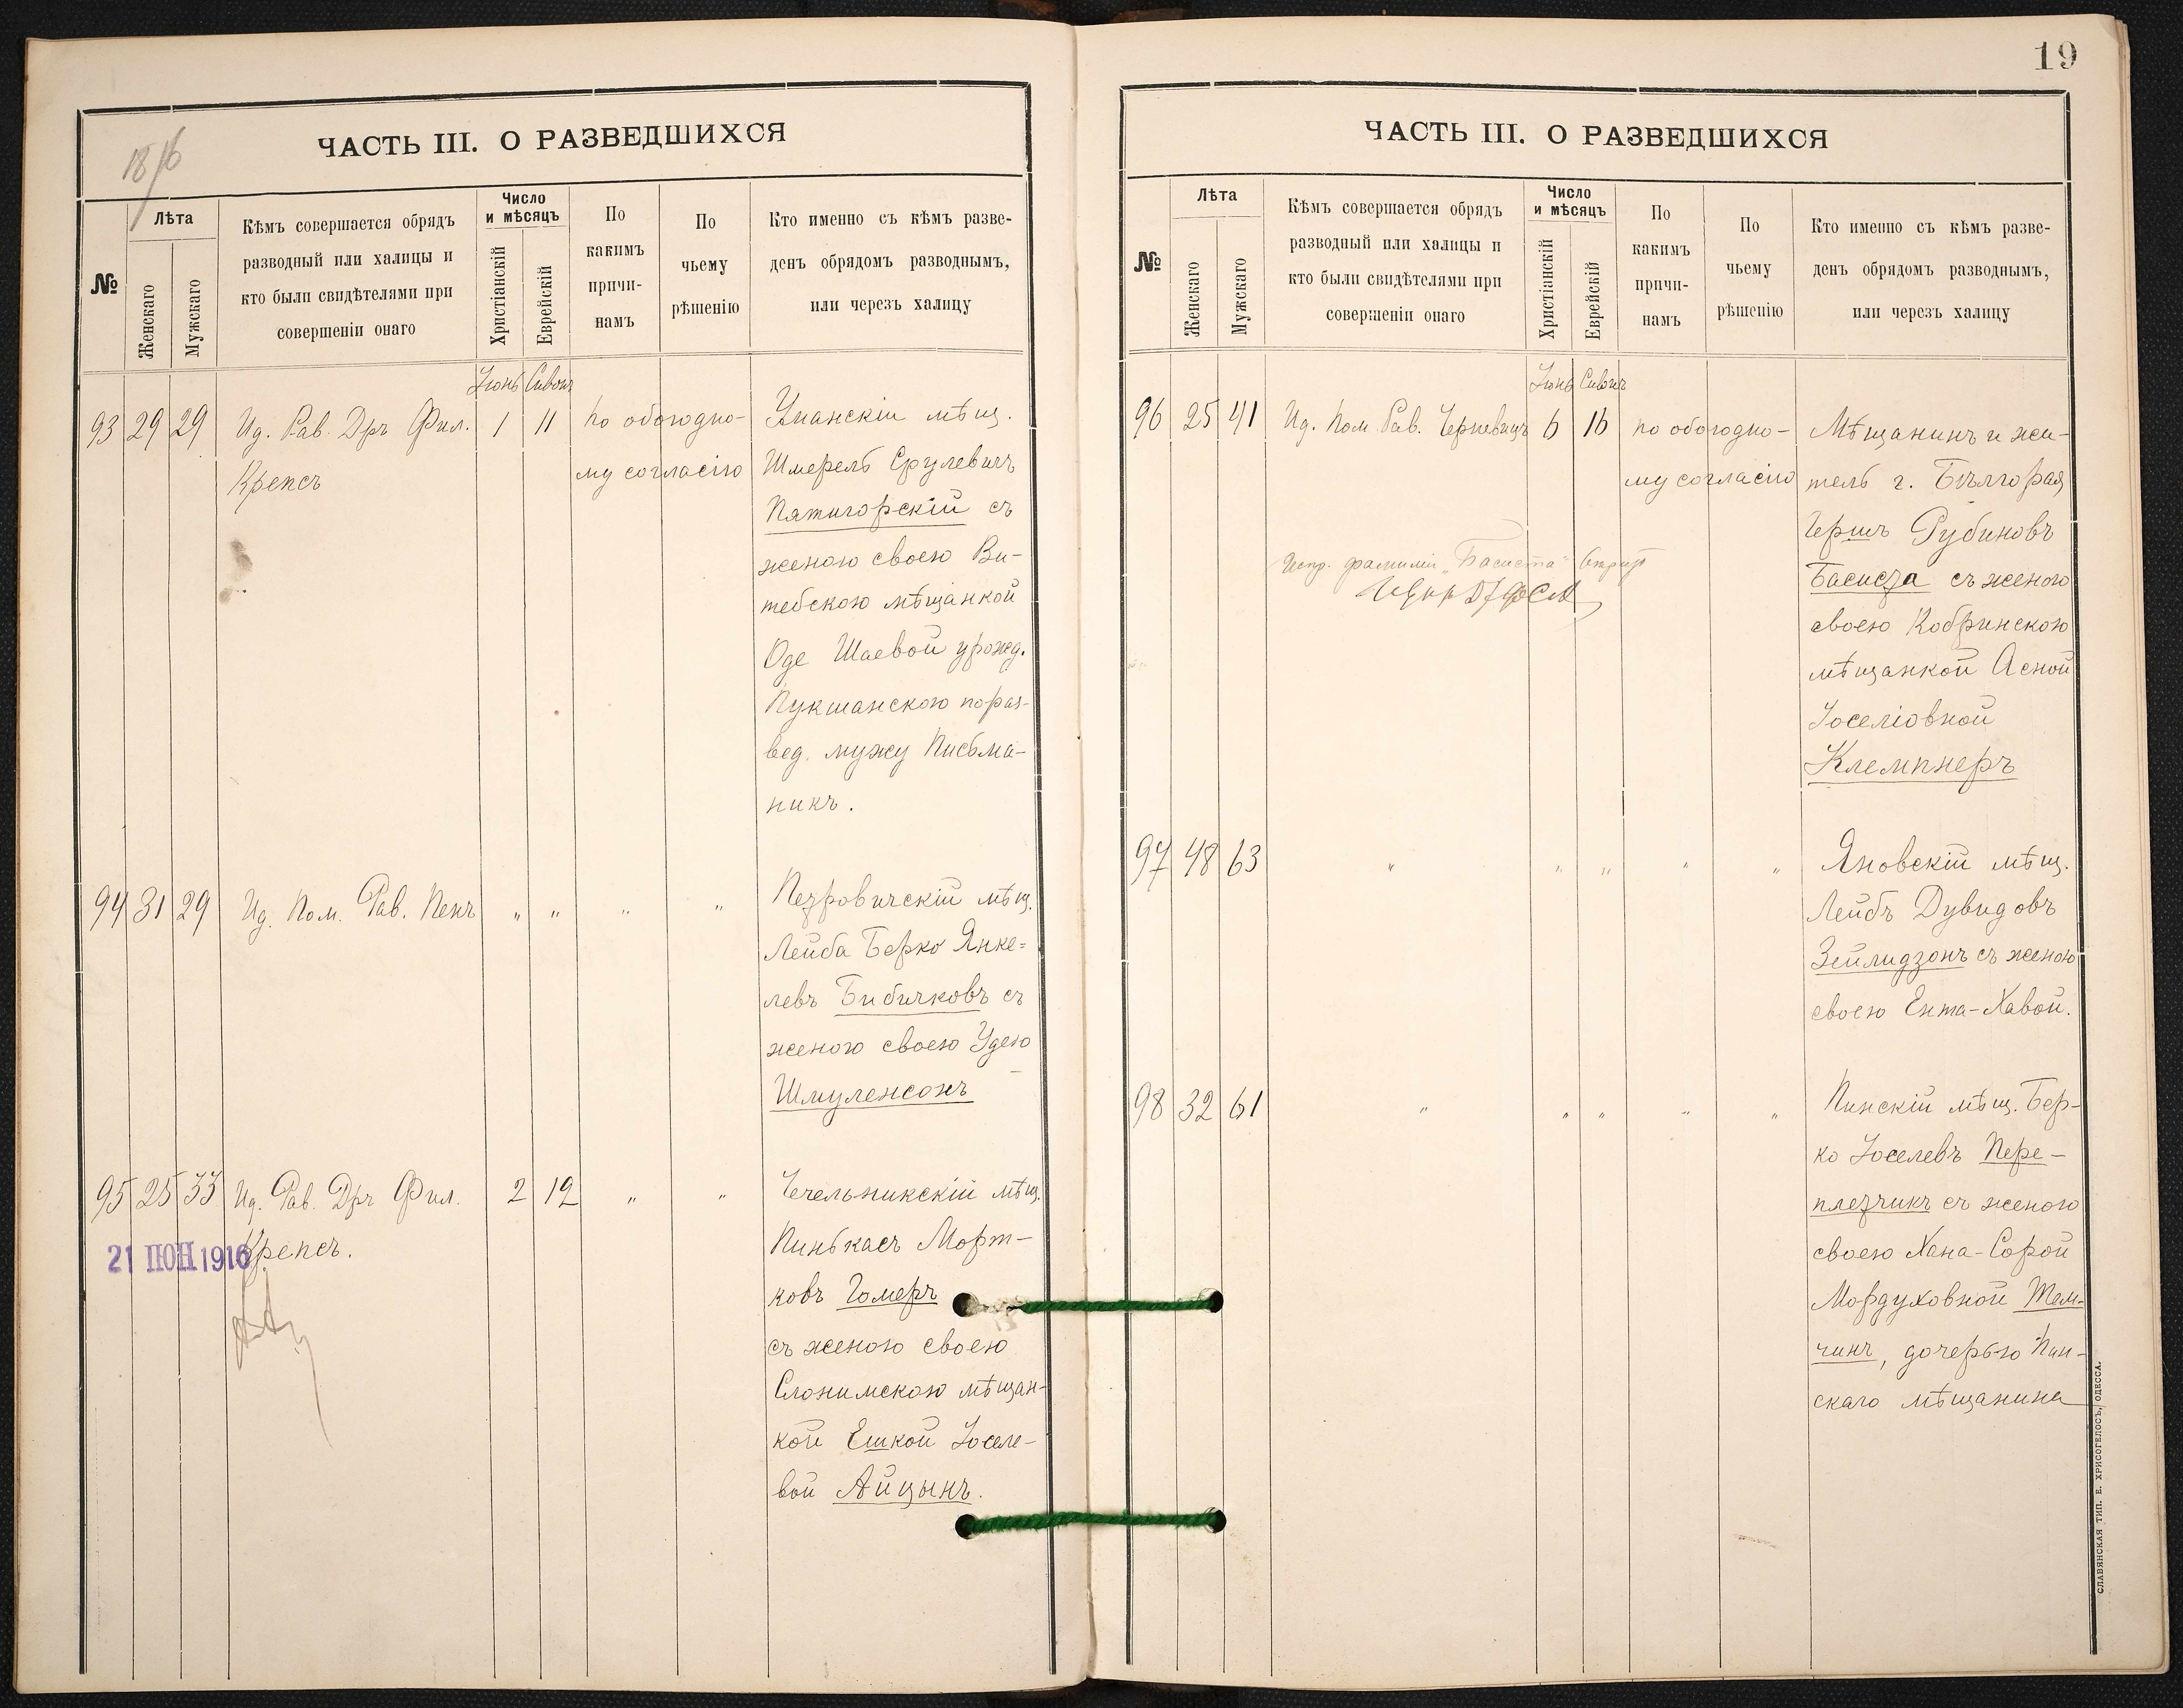 19
ЧАСТЬ III. О РАЗВЕДШИХСЯ
№
Лѣта
Женскаго
Мужскаго
Кѣмъ совершается обрядъ
разводный или халицы и
кто были свидѣтелями при
совершеніи онаго
Число
и мѣсяцъ
Христіанскій
Еврейскій
По
какимъ
причи-
намъ
По
чьему
рѣшенію
Кто именно съ кѣмъ разве-
денъ обрядомъ разводнымъ,
или черезъ халицу
Іюнь Сивонъ
93 29 29 Ид. Рав. Дръ Фил. 1 11 по обоюдно-
Крепсъ
му согласію
Уманскій мѣщ.
Шмерель Срулевичъ
Пятигорскій съ
женою своею Ви-
тебскою мѣщанкой
Оде Шаевой урожд.
Пукшанскою по раз-
вед. мужу Письма-
никъ.
94 31 29 Ид. Пом. Рав. Пенъ " " " "
Петровичскій мѣщ.
Лейба Берко Янке-
левъ Бибичковъ съ
женою своею Удею
Шмуленсонъ
95 25 33 Ид. Рав. Дръ Фил. 2 12 " "
Крепсъ.
21 ІЮН 1916
Чечельникскій мѣщ.
Пинькасъ Морт-
ковъ Гомеръ
съ женою своею
Слонимскою мѣщан-
кой Ешкой Іоселе-
вой Айцынъ.
ЧАСТЬ III. О РАЗВЕДШИХСЯ
№
Лѣта
Женскаго
Мужскаго
Кѣмъ совершается обрядъ
разводный или халицы и
кто были свидѣтелями при
совершеніи онаго
Число
и мѣсяцъ
Христіанскій
Еврейскій
По
какимъ
причи-
намъ
По
чьему
рѣшенію
Кто именно съ кѣмъ разве-
денъ обрядомъ разводнымъ,
или черезъ халицу
Іюнь Сивонъ
96 25 41 Ид. Пом. Рав. Черневицъ 6 16 по обоюдно-
му согласію
Испр. фамиліи „Басиста"
Мѣщанинъ и жи-
тель г. Бѣлгорая
Гершъ Рубиновъ
Басиста съ женою
своею Кобринскою
мѣщанкой Асной
Іоселіовной
Клемпнеръ
97 48 63 " " " " "
Яновскій мѣщ.
Лейбъ Дувидовъ
Зейлидзонъ съ женою
своею Ента-Хавой.
98 32 61 " " " " "
Пинскій мѣщ. Бер-
ко Іоселевъ Пере-
плетчикъ съ женою
своею Хана-Сорой
Мордуховной Тем-
чинъ, дочерью Пин-
скаго мѣщанина
СЛАВЯНСКАЯ ТИП. Е. ХРИСОГЕЛОСЪ, ОДЕССА.